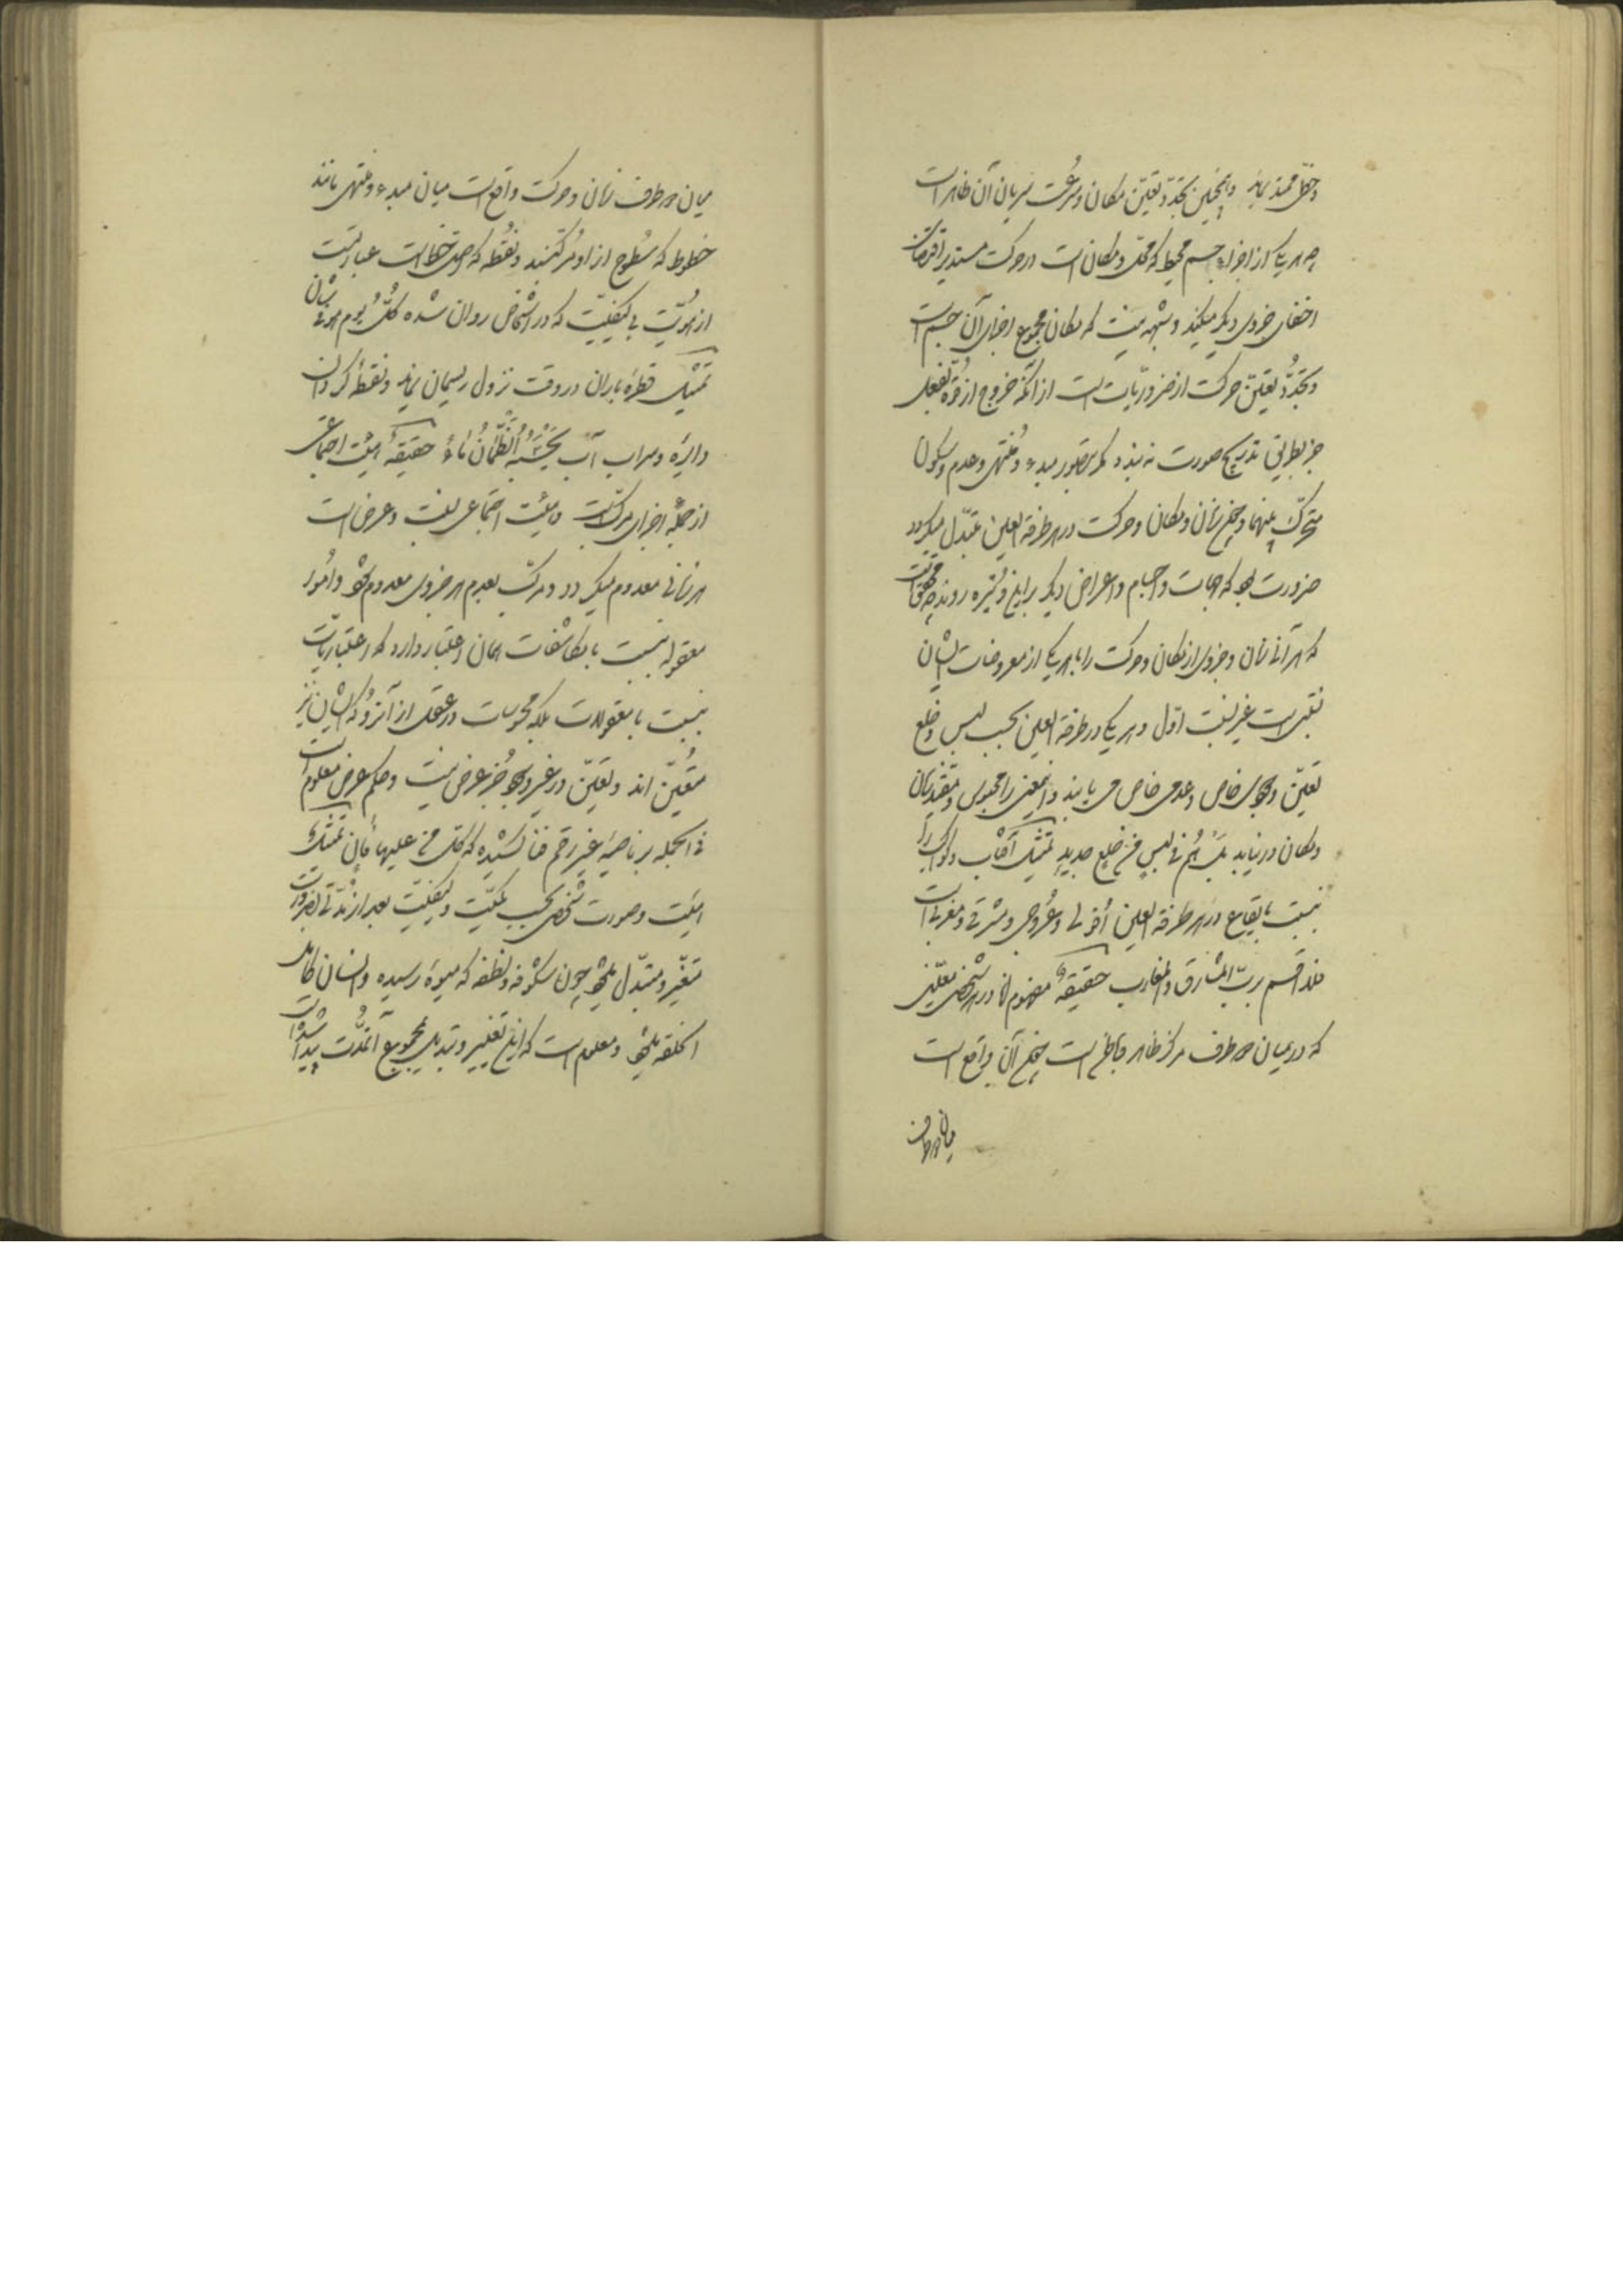 و خطّ ممتد نماید و همچنین تجدّد تعیّن مکان و سرعت سریان آن ظاهر است
چه هر یکی از اجزاء جسم محیط که محلّ و مکان است در حرکت مستدیر اقتضای
اختفای جزوی دیگر میکند و شبهه نیست که مکان مجموع اجزای آن جسم است
و تجدّد تعیّن حرکت از ضروریّات است از آنکه خروج از قوّه بفعل
جز بطریق تدریج صورت نه بندد مگر بتصور مبدء و منتهی و عدم سکون
متحرّک بینهما و چون زمان و مکان و حرکت در هر طرفة العین متبدّل میگردد
ضرورت بود که جهات و اجسام و اعراض دیگر بر این وتیره روند چه
که هر آنی زمان و جزوی از مکان و حرکت را با هر یکی از معروضات ایشان
نسبتی است غیر نسبت اوّل و هر یکی در طرفة العین بحسب لبس و خلع
تعیّن وجودی خاص و عدمی خاص می یابند و این معنی را محبوس و مقیّد زمان
و مکان در نیابد بَلْ هُمْ فی لَبسٍ مِن خَلقٍ جدیدٍ تمثیل آفتاب و کواکب را
نسبت با بقاع در هر طرفة العین افولی و عروجی و مشرقی و مغربی است
فلا اقسم بربّ المشارق و المغارب حقیقة مفهوم انا در هر شخص معیّنی
که در میان دو طرف مرکز ظاهر و باطن است همچون آن واقع است
میان دو طرف
میان دو طرف زمان و حرکت واقع است میان مبدء و منتهی مانند
خطوط که سُطوح از او مرکّبند و نُقطه که اصل خطّ است عبارتست
از هُویّت بی کیفیّت که در اشخاص روان شده کُلَّ یَوم هُوَ فی شأن
تمثیل قطرهٔ باران در وقت نزول ریسمان نماید و نقطهٔ گردان
دایره و سراب آب یَحْسَبُهُ الظَّمْآنُ ماءً حقیقة هیئت اجتماعی
از جملهٔ اجزای مرکّبست و هیئت اجتماعی نسبت و عرض است
هر زمانی معدوم میگردد و مرکّب بعدم هر جزوی معدوم شود و امور
معقوله نسبت با مکاشفات همان اعتبار دارد که اعتباریّات
نسبت با معقولات بلکه محسوسات در عقل از آنرو که ایشان نیز
متعیّن اند و تعیّن در غیر وجود جُز عرض نیست و حکم عرض معلوم است
فی الجمله بر ناصیهٔ غیر رقم فنا کشیده که کلّ من علیها فان تمثیل
هیئت و صورت شخص بحسب کمیّت و کیفیّت بعد از مدّتی بضرورت
متغیّر و متبدّل شود چون شکوفه و نطفه که میوهٔ رسیده و انسان کامل
الخلقه شود و معلوم است که این تغییر و تبدیل بمجموع آنمدّت پیدا شده است